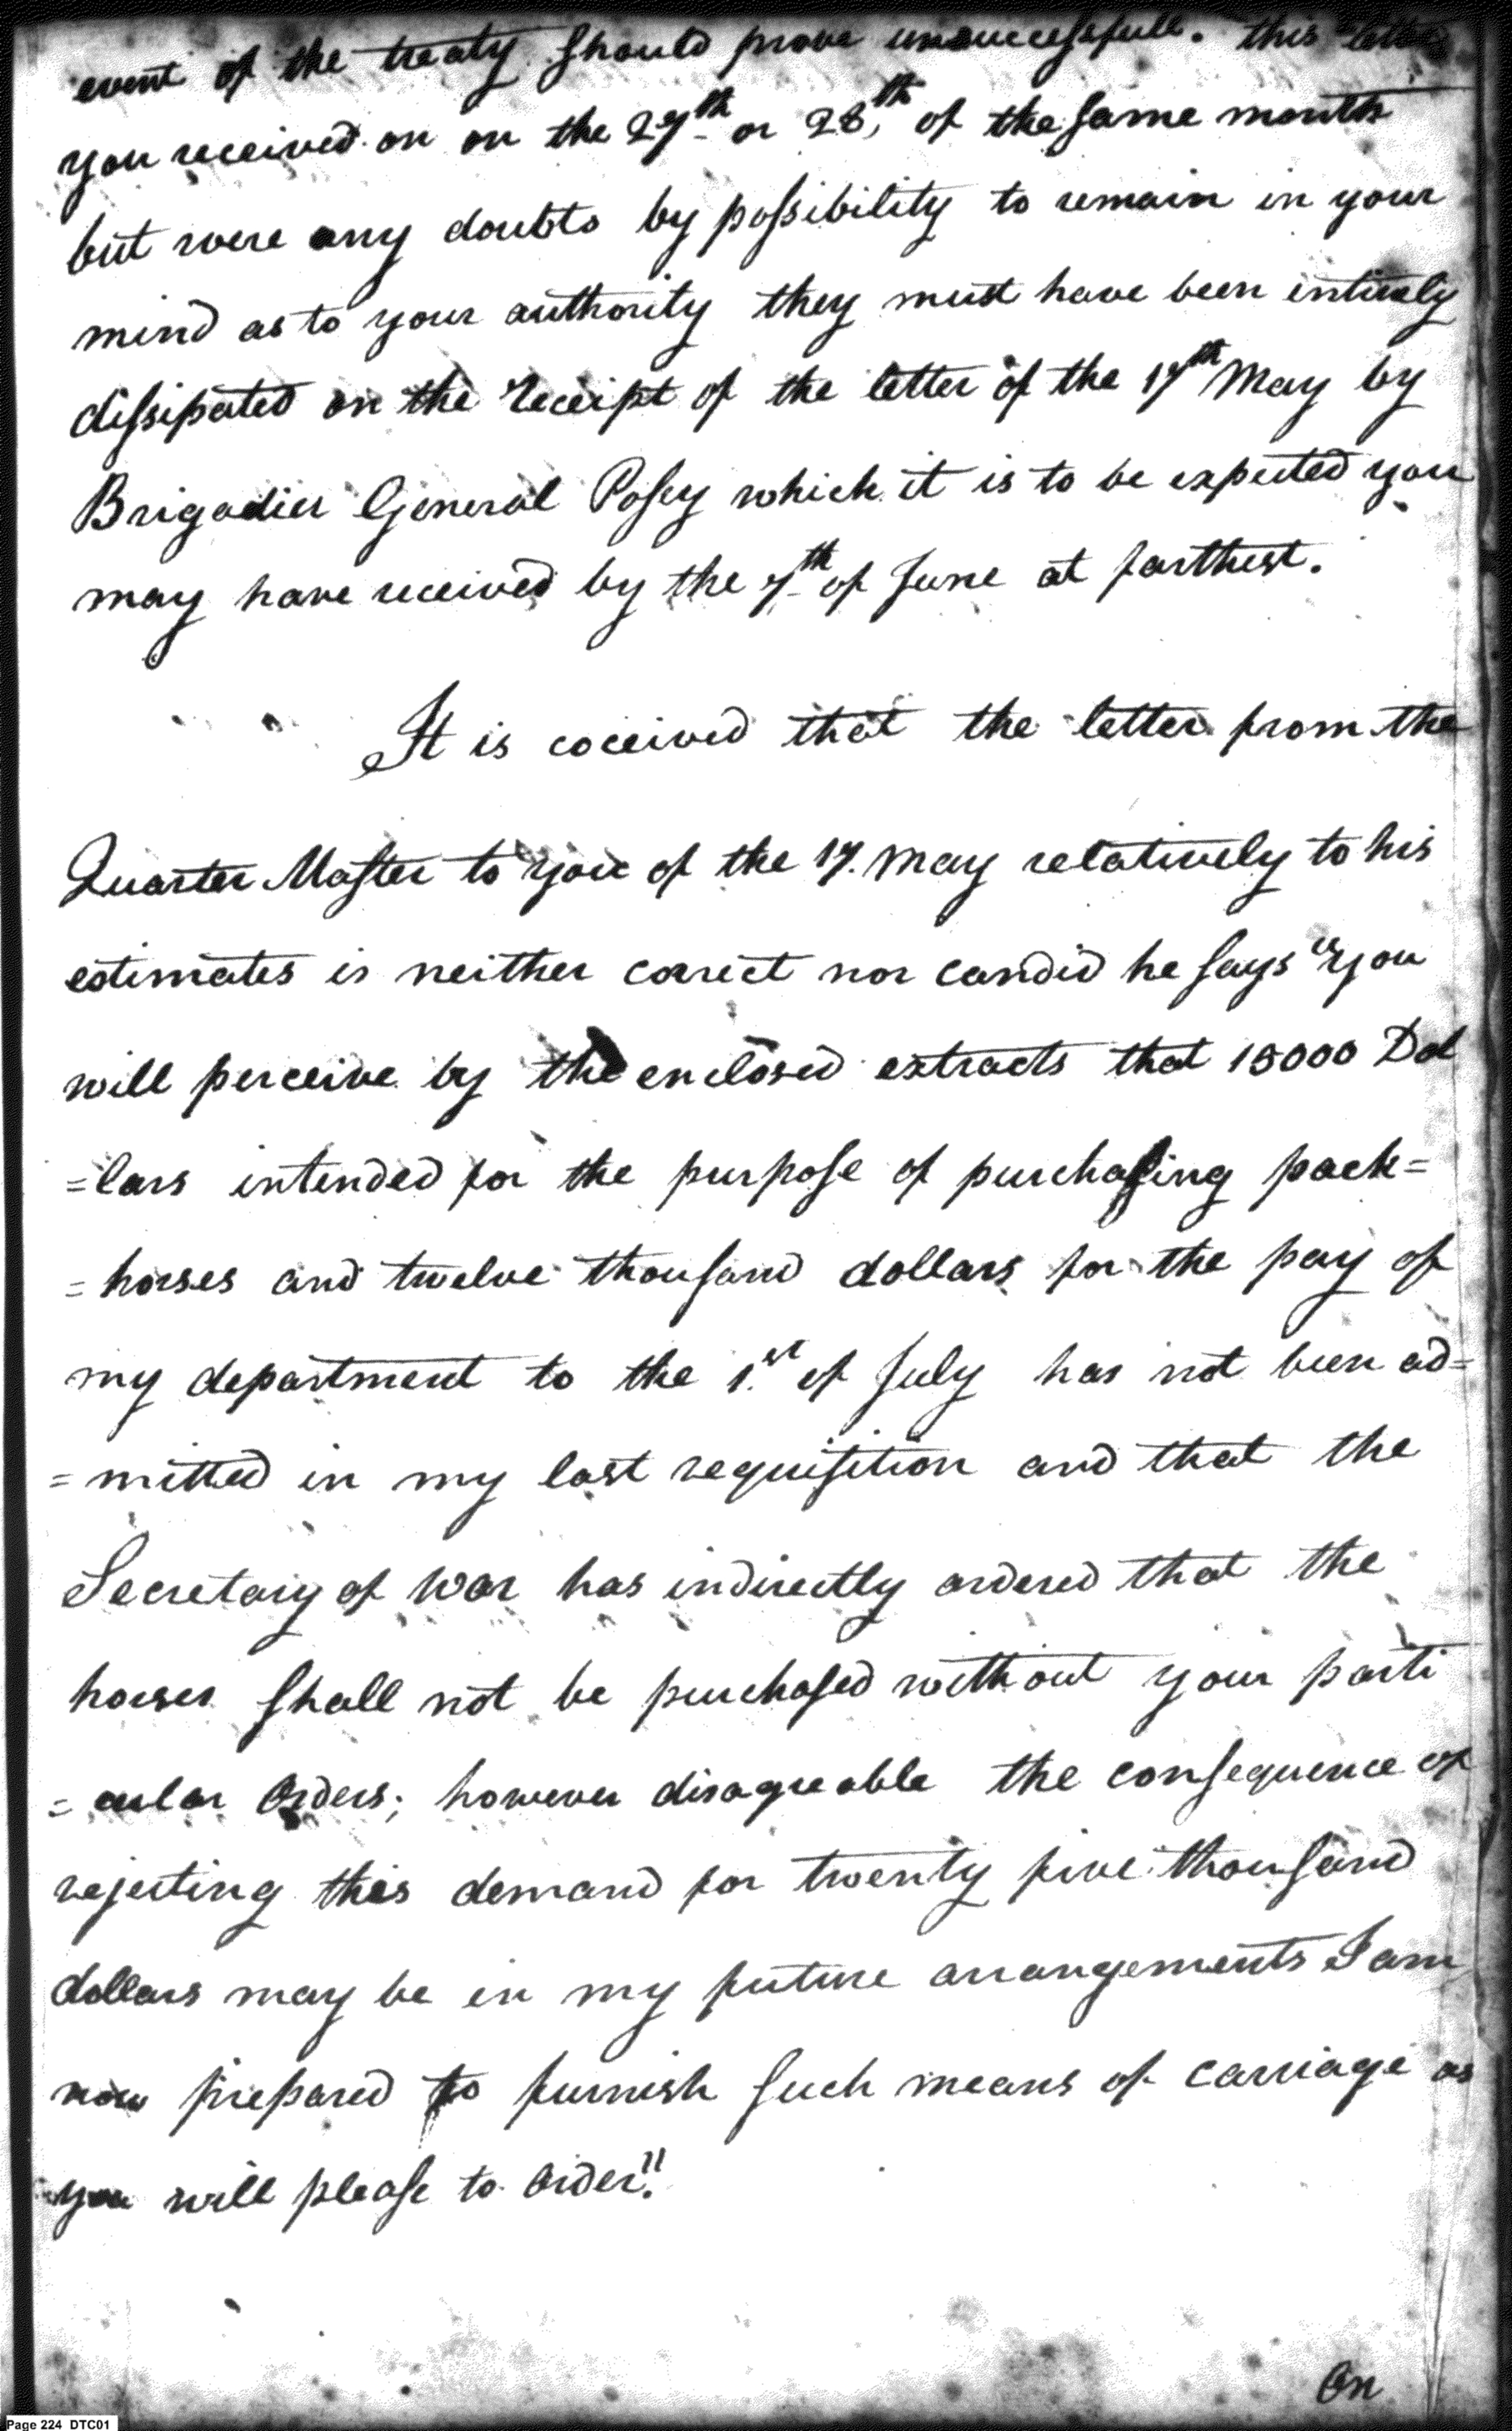 event of the treaty should prove unsuccessfull. this letter
you received on on the 27th or 28th of the same month
but were any doubts by possibility to remain in your
mind as to your authority they must have been intirely
dissipated on the receipt of the letter of the 17th May by
Brigadier General Posey which it is to be expected you
may have received by the 7th of June at farthest.
It is coceived that the letter from the
Quarter Master to you of the 17. May relatively to his
estimates is neither correct nor candid he says "you
will perceive by the enclosed extracts that 15000 Dol
=lars intended for the purpose of purchasing pack=
=horses and twelve thousand dollars for the pay of
my department to the 1.st of July has not been ad=
=mitted in my last requisition and that the
Secretary of War has indirectly ordered that the
horses shall not be purchased without your parti
=cular Orders; however disagreable the consequence of
rejecting this demand for twenty five thousand
dollars may be in my future arrangements I am
now prepared to furnish such means of carriage as
you will please to Order."
On
Page 224 DTC01